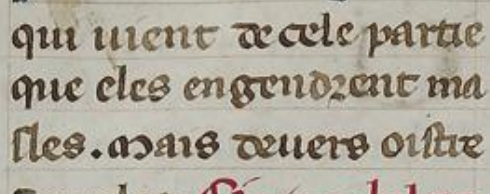 qui uient de cele partie
que eles engendrent ma
sles. Mais deuers oistre